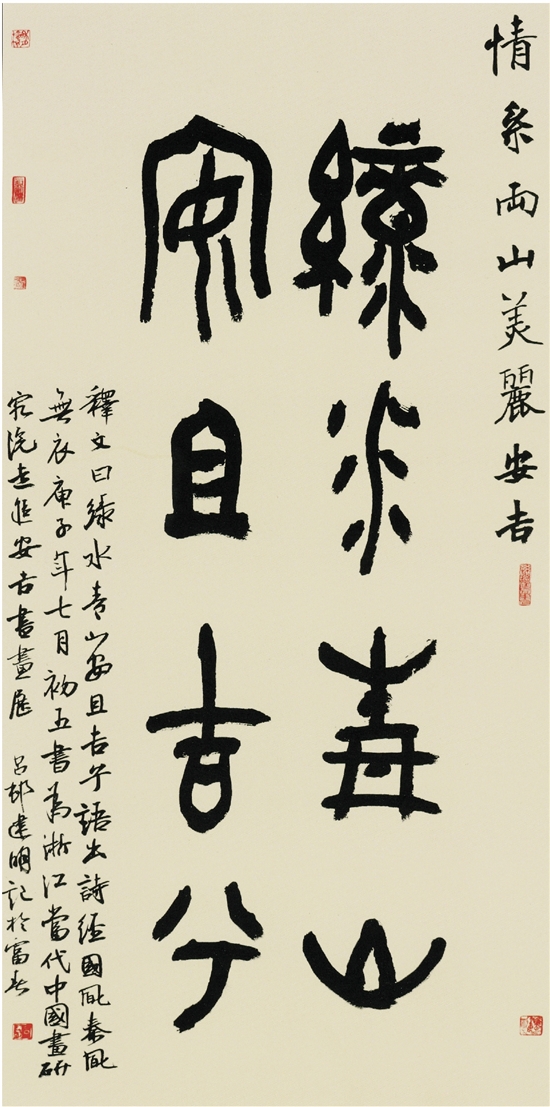 情系兩山美麗安吉
綠水青山
安且吉兮
釋文曰綠水青山安且吉兮語出詩經國風秦風
無衣庚子年七月初五書為浙江當代中國畫研
究院走進安吉書畫展 呂邨建明記於富春